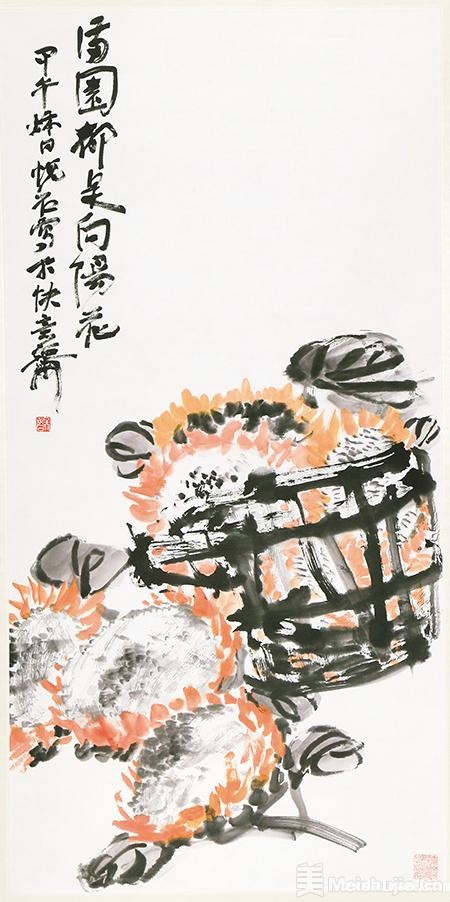 满園都是向陽花
甲午秋日悦石寫於快意齋
美 Meishujia.cn